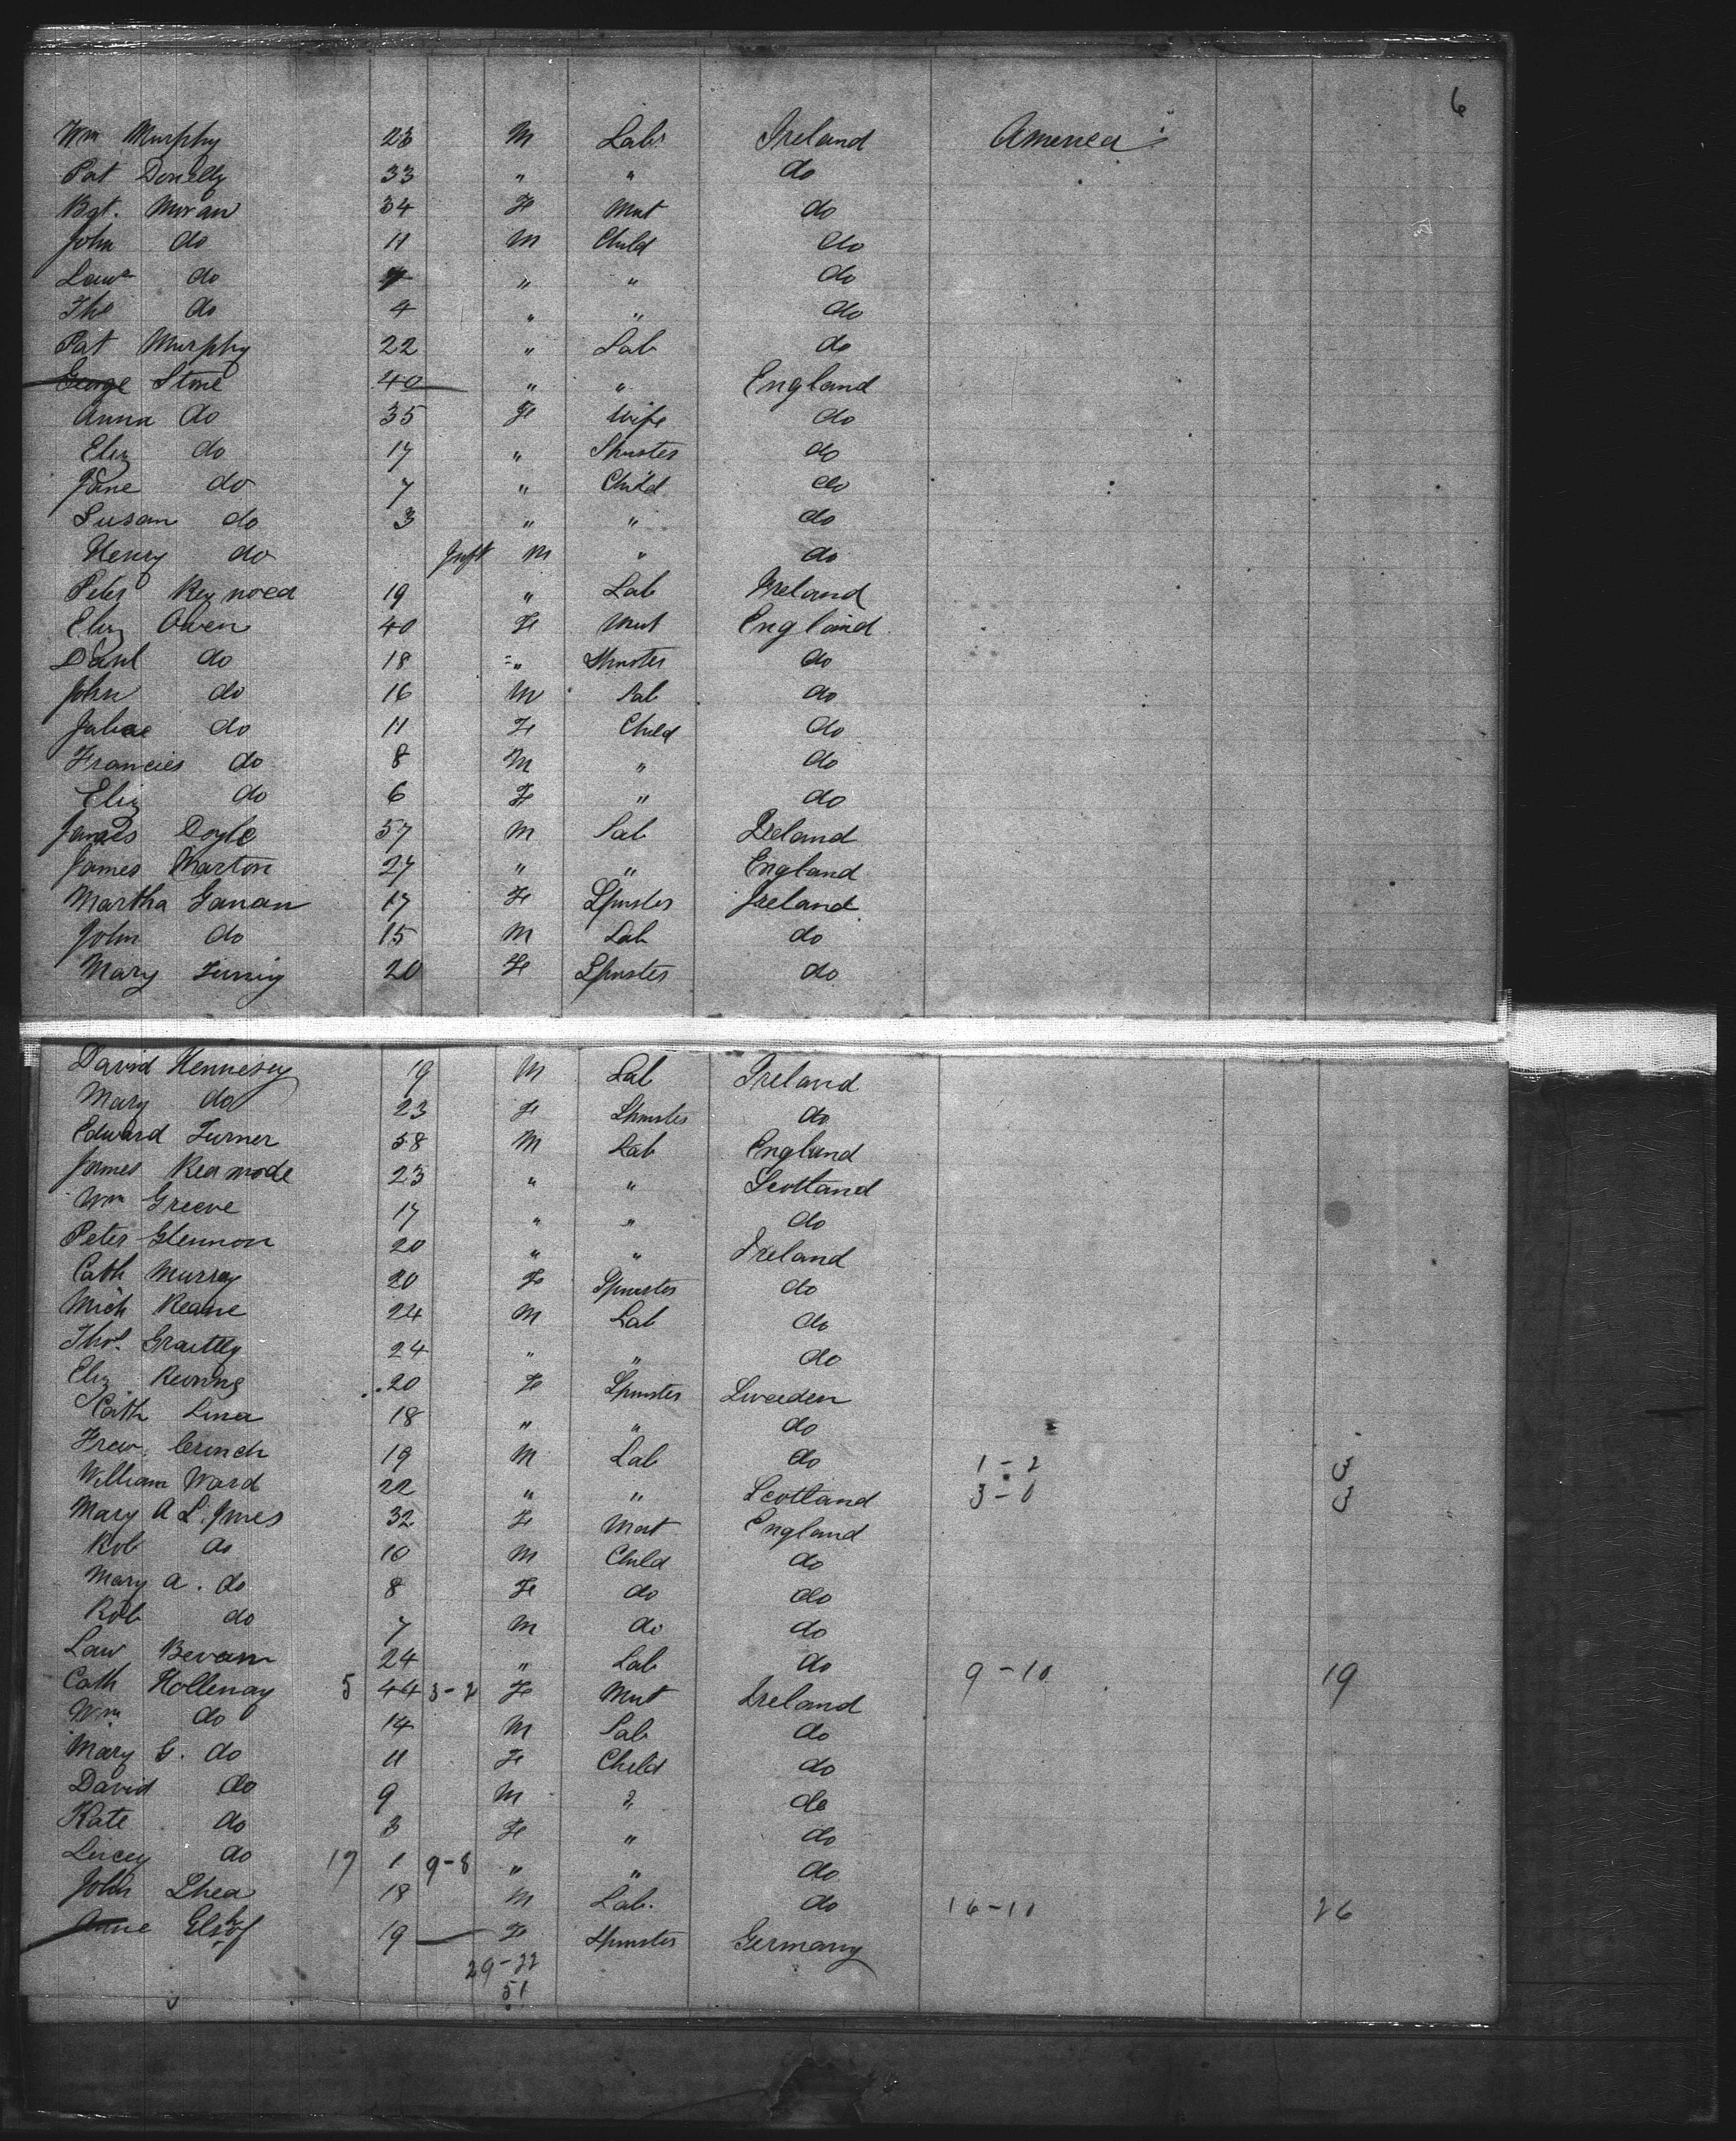 6
Wm Murphy 23 M Lab Ireland America
Pat Donelly 33 " " do
Bgt. Moran 34 Fe Mat do
John do 11 M Child do
Lawr do " " do
Tho do 4 " " do
Pat Murphy 22 " Lab do
George Stone 40 " " England
Anna do 35 Fe Wife do
Eliz do 17 " Spinster do
Jane do 7 " Child do
Susan do 3 " " do
Henry do Inft M " do
Peter 19 " Lab Ireland
Eliz Owen 40 Fe Mat England
Danl do 18 " Spinster do
John do 16 M Lab do
do 11 Fe Child do
Francies do 8 M " do
Eliz do 6 Fe " do
James Doyle 57 M Lab Ireland
James Marton 27 " " England
Martha Ganan 17 Fe Spinster Ireland
John do 15 M Lab do
Mary 20 Fe Spinster do
David Hennesey 19 M Lab Ireland
Mary do 23 Fe Spinster do
Edward Turner 58 M Lab England
James Kermode 23 " " Scotland
Wm Greeve 17 " " do
Peter Glennon 20 " " Ireland
Cath Murray 20 Fe Spinster do
Mich Keane 24 M Lab do
Thos. 24 " " do
Eliz 20 Fe Spinster Sweeden
Cath Lina 18 " " do
19 M Lab do 1-2 3
William Ward 22 " " Scotland 3-0 3
Mary A L. Jones 32 Fe Mat England
Rob do 10 M Child do
Mary A. do 8 Fe do do
Rob do 7 M do do
Law Bevan 24 " Lab do 9-10 19
Cath Hollenay 5 44 3-2 Fe Mat Ireland
Wm do 14 M Lab do
Mary G. do 11 Fe Child do
David do 9 M " do
Kate do 3 Fe " do
Lucey do 17 1 9-8 " " do
John Shea 18 M Lab. do 16-10 26
Anne 19 Fe Spinster Germany
29-22
51